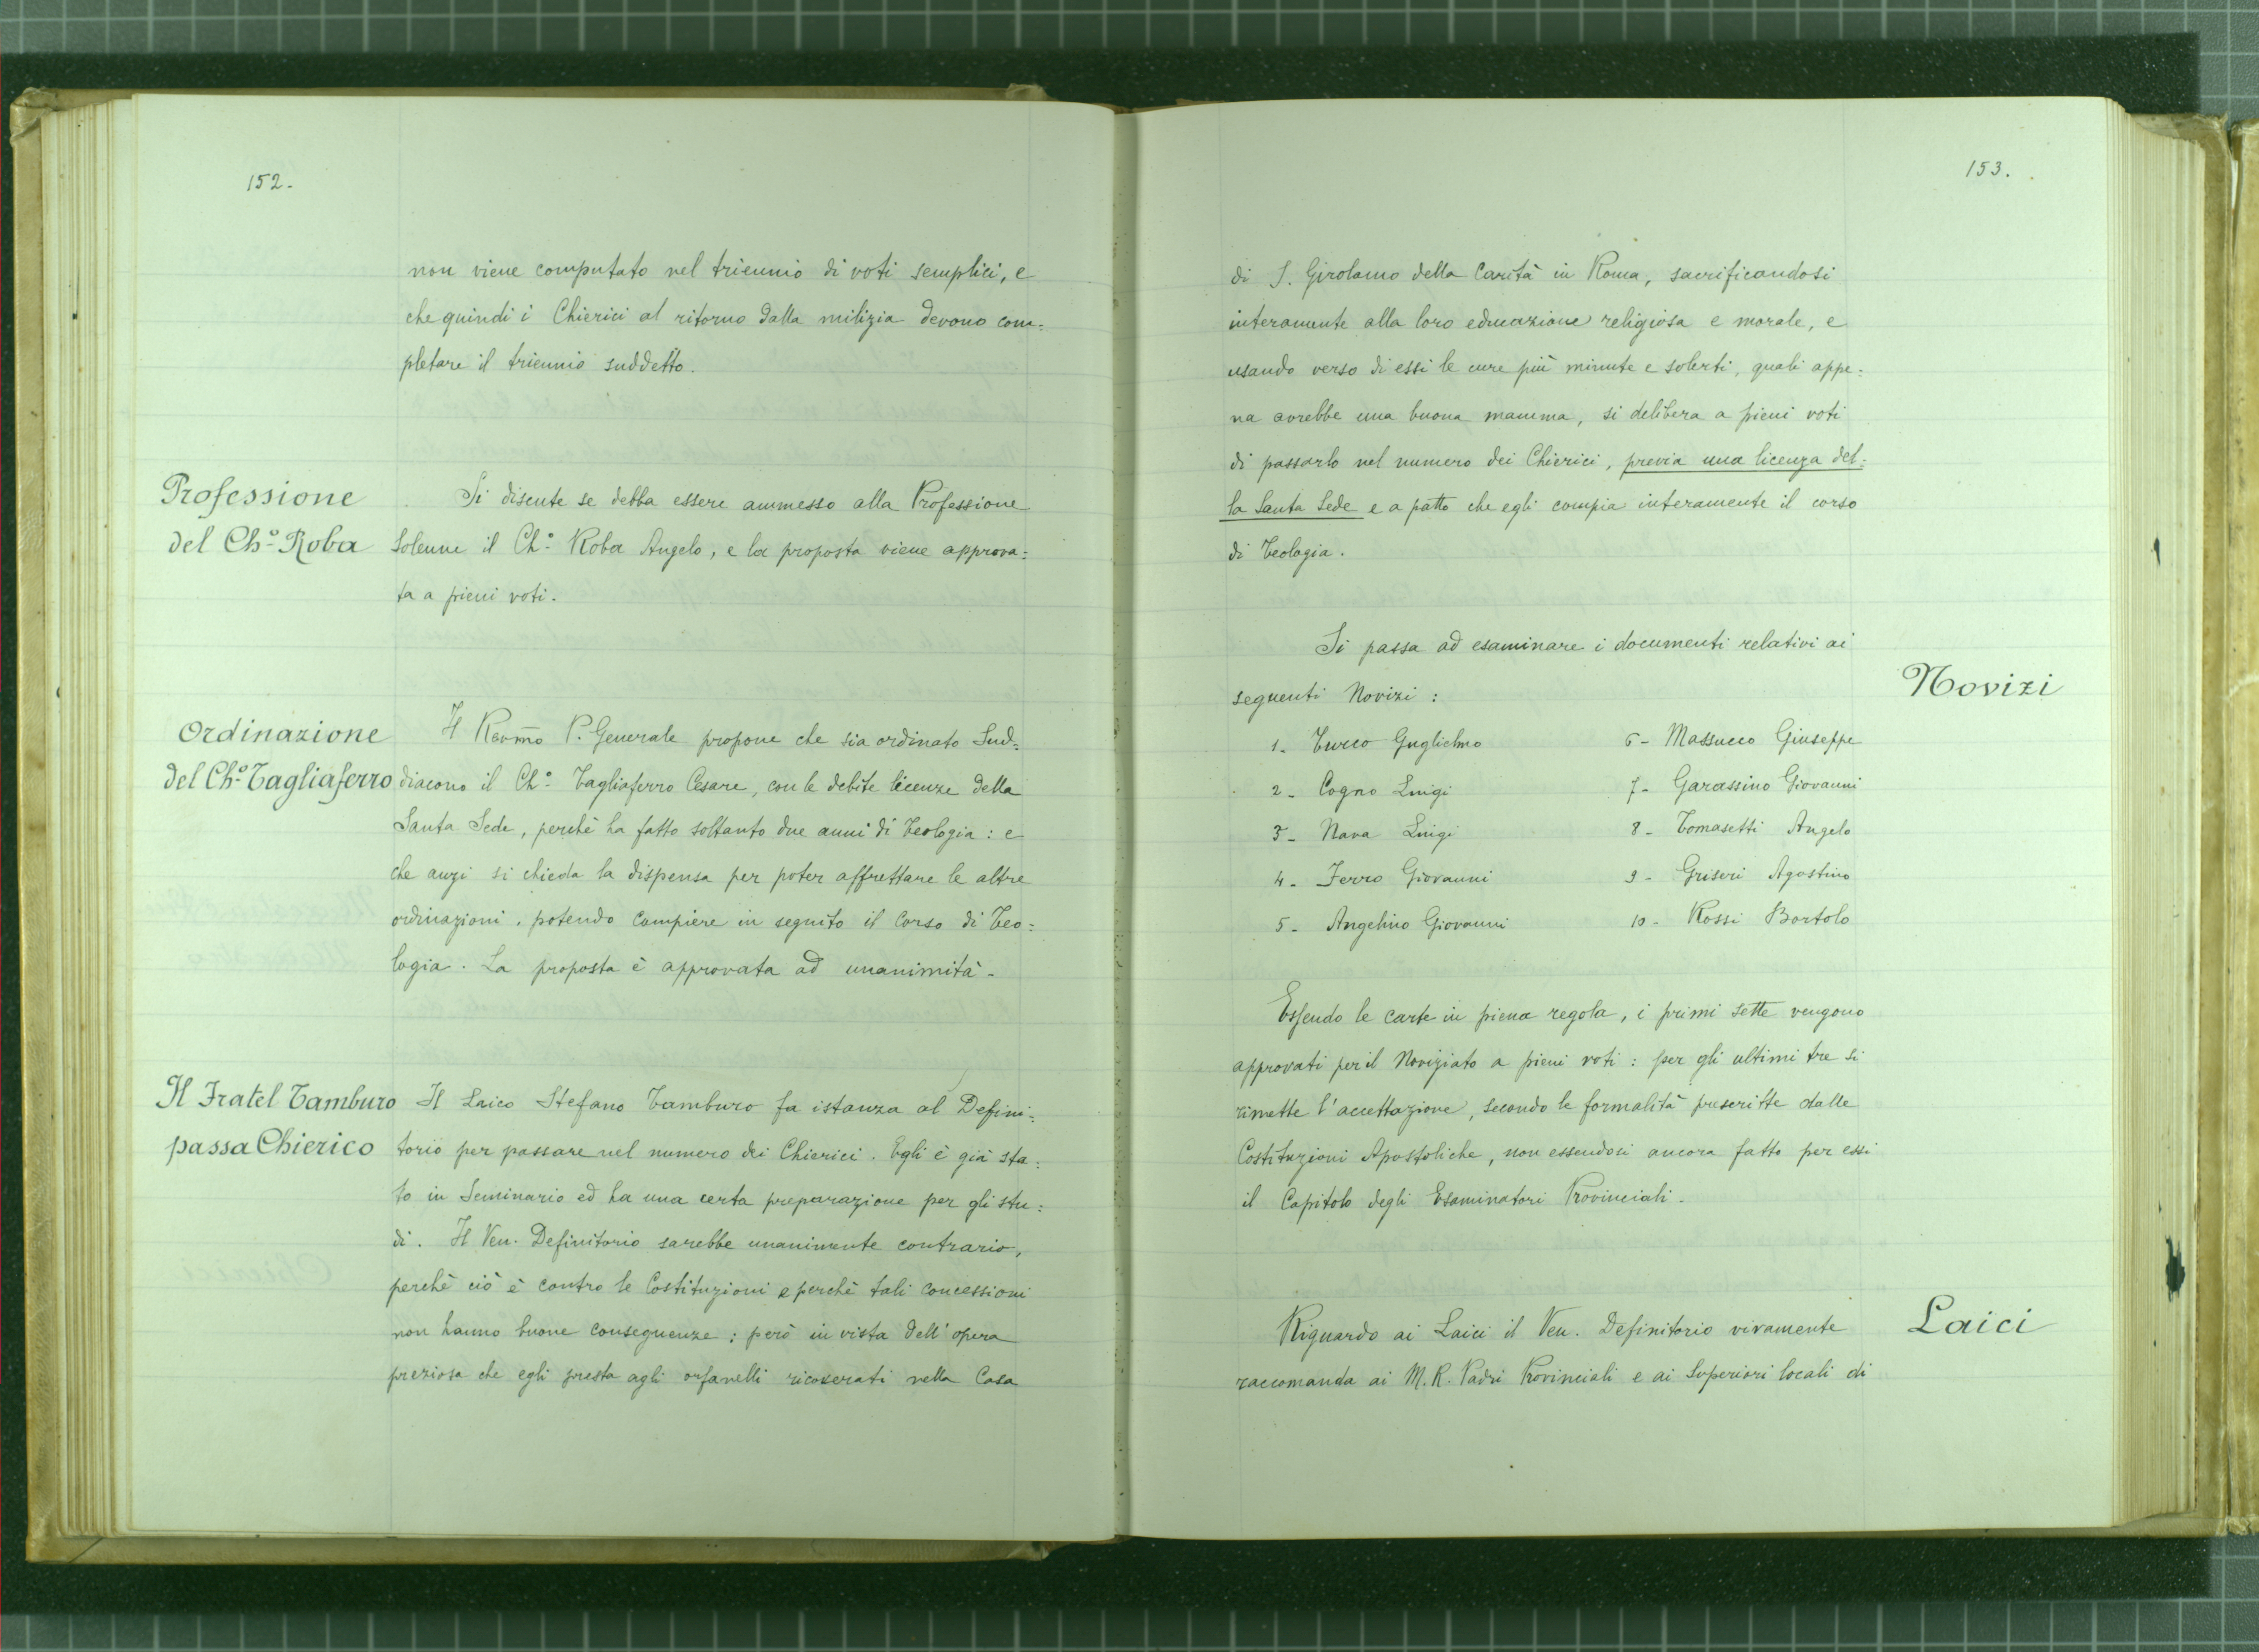 152.
non viene computato nel triennio di voti semplici, e
che quindi i Chierici al ritorno dalla milizia devono com=
pletare il triennio suddetto.
Professione
del Ch.º Roba
Si discute se debba essere ammesso alla Professione
Solenne il Ch.º Roba Angelo, e la proposta viene approva=
ta a pieni voti.
Ordinazione
del Ch.º Tagliaferro
Il Revmo P. Generale propone che sia ordinato Sud=
diacono il Ch.º Tagliaferro Cesare, con le debite licenze della
Santa Sede, perchè ha fatto soltanto due anni di Teologia: e
che anzi si chieda la dispensa per poter affrettare le altre
ordinazioni, potendo compiere in seguito il Corso di Teo=
logia. La proposta è approvata ad unanimità.
Il Fratel Tamburo
passa Chierico
Il Laico Stefano Tamburo fa istanza al Defini=
torio per passare nel numero dei Chierici. Egli è già sta=
to in Seminario ed ha una certa preparazione per gli stu=
di. Il Ven. Definitorio sarebbe unanimente contrario,
perchè ciò è contro le Costituzioni e perchè tali concessioni
non hanno buone conseguenze; però in vista dell'opera
preziosa che egli presta agli orfanelli ricoverati nella Casa
153.
di S. Girolamo della Carità in Roma, sacrificandosi
interamente alla loro educazione religiosa e morale, e
usando verso di essi le cure più minute e solerti, quali appe=
na avrebbe una buona mamma, si delibera a pieni voti
di passarlo nel numero dei Chierici, previa una licenza del=
la Santa Sede e a patto che egli compia interamente il corso
di Teologia.
Novizi
Si passa ad esaminare i documenti relativi ai
seguenti Novizi:
1. Turco Guglielmo
2. Cogno Luigi
3. Nava Luigi
4. Ferro Giovanni
5. Angelino Giovanni
6 - Massucco Giuseppe
7 - Garassino Giovanni
8 - Tomasetti Angelo
9 - Griseri Agostino
10 - Rossi Bortolo
Essendo le carte in piena regola, i primi sette vengono
approvati per il Noviziato a pieni voti: per gli ultimi tre si
rimette l'accettazione, secondo le formalità prescritte dalle
Costituzioni Apostoliche, non essendosi ancora fatto per essi
il Capitolo degli Esaminatori Provinciali.
Laici
Riguardo ai Laici il Ven. Definitorio vivamente
raccomanda ai M. R. Padri Provinciali e ai Superiori locali di